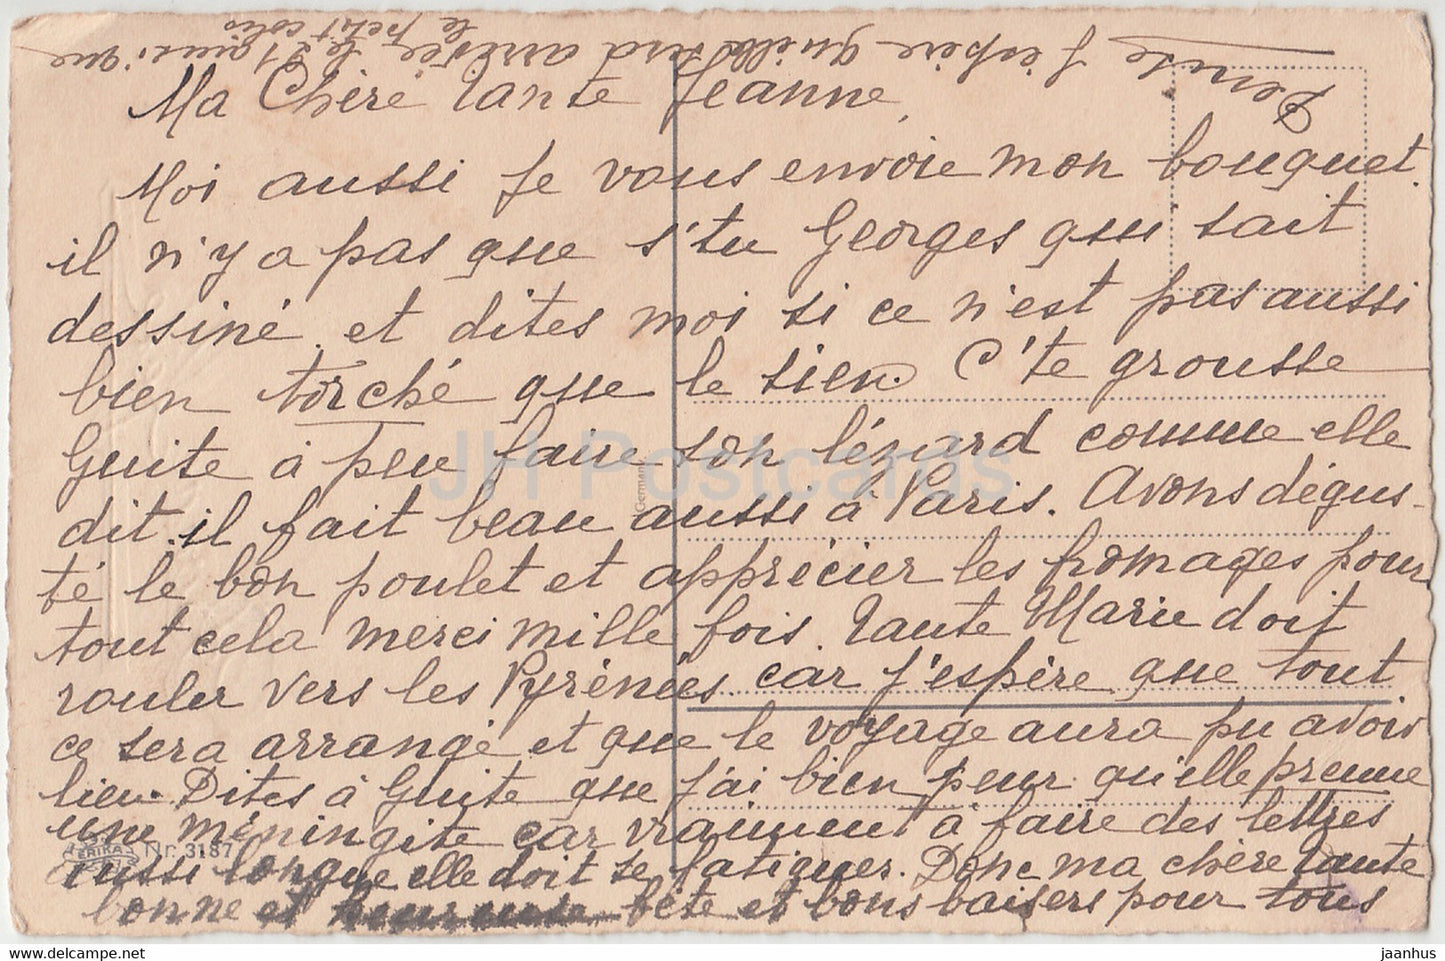 Ma Chère Tante Jeanne,
Moi aussi je vous envoie mon bouquet.
il n'y a pas que s'tu Georges qui sait
dessiné et dites moi si ce n'est pas aussi
bien torché que le sien. C'te grousse
Guite à peu faire son lézard comme elle
dit. il fait beau aussi à Paris. Avons dégus-
té le bon poulet et apprécier les fromages pour
tout cela merci mille fois. Tante Marie doit
rouler vers les Pyrénées car j'espère que tout
ce sera arrangé et que le voyage aura pu avoir
lieu. Dites à Guite que j'ai bien peur qu'elle prenne
une méningite car vraiment à faire des lettres
aussi longue elle doit se fatiguer. Donc ma chère Tante
bonne et heureuse fête et bons baisers pour tous
Denise J'espère qu'elle sera arrivée le
le petit colis
Germany
ERIKA
Nr. 3187
JH Postcards
hip-postcard.com
jaanhus